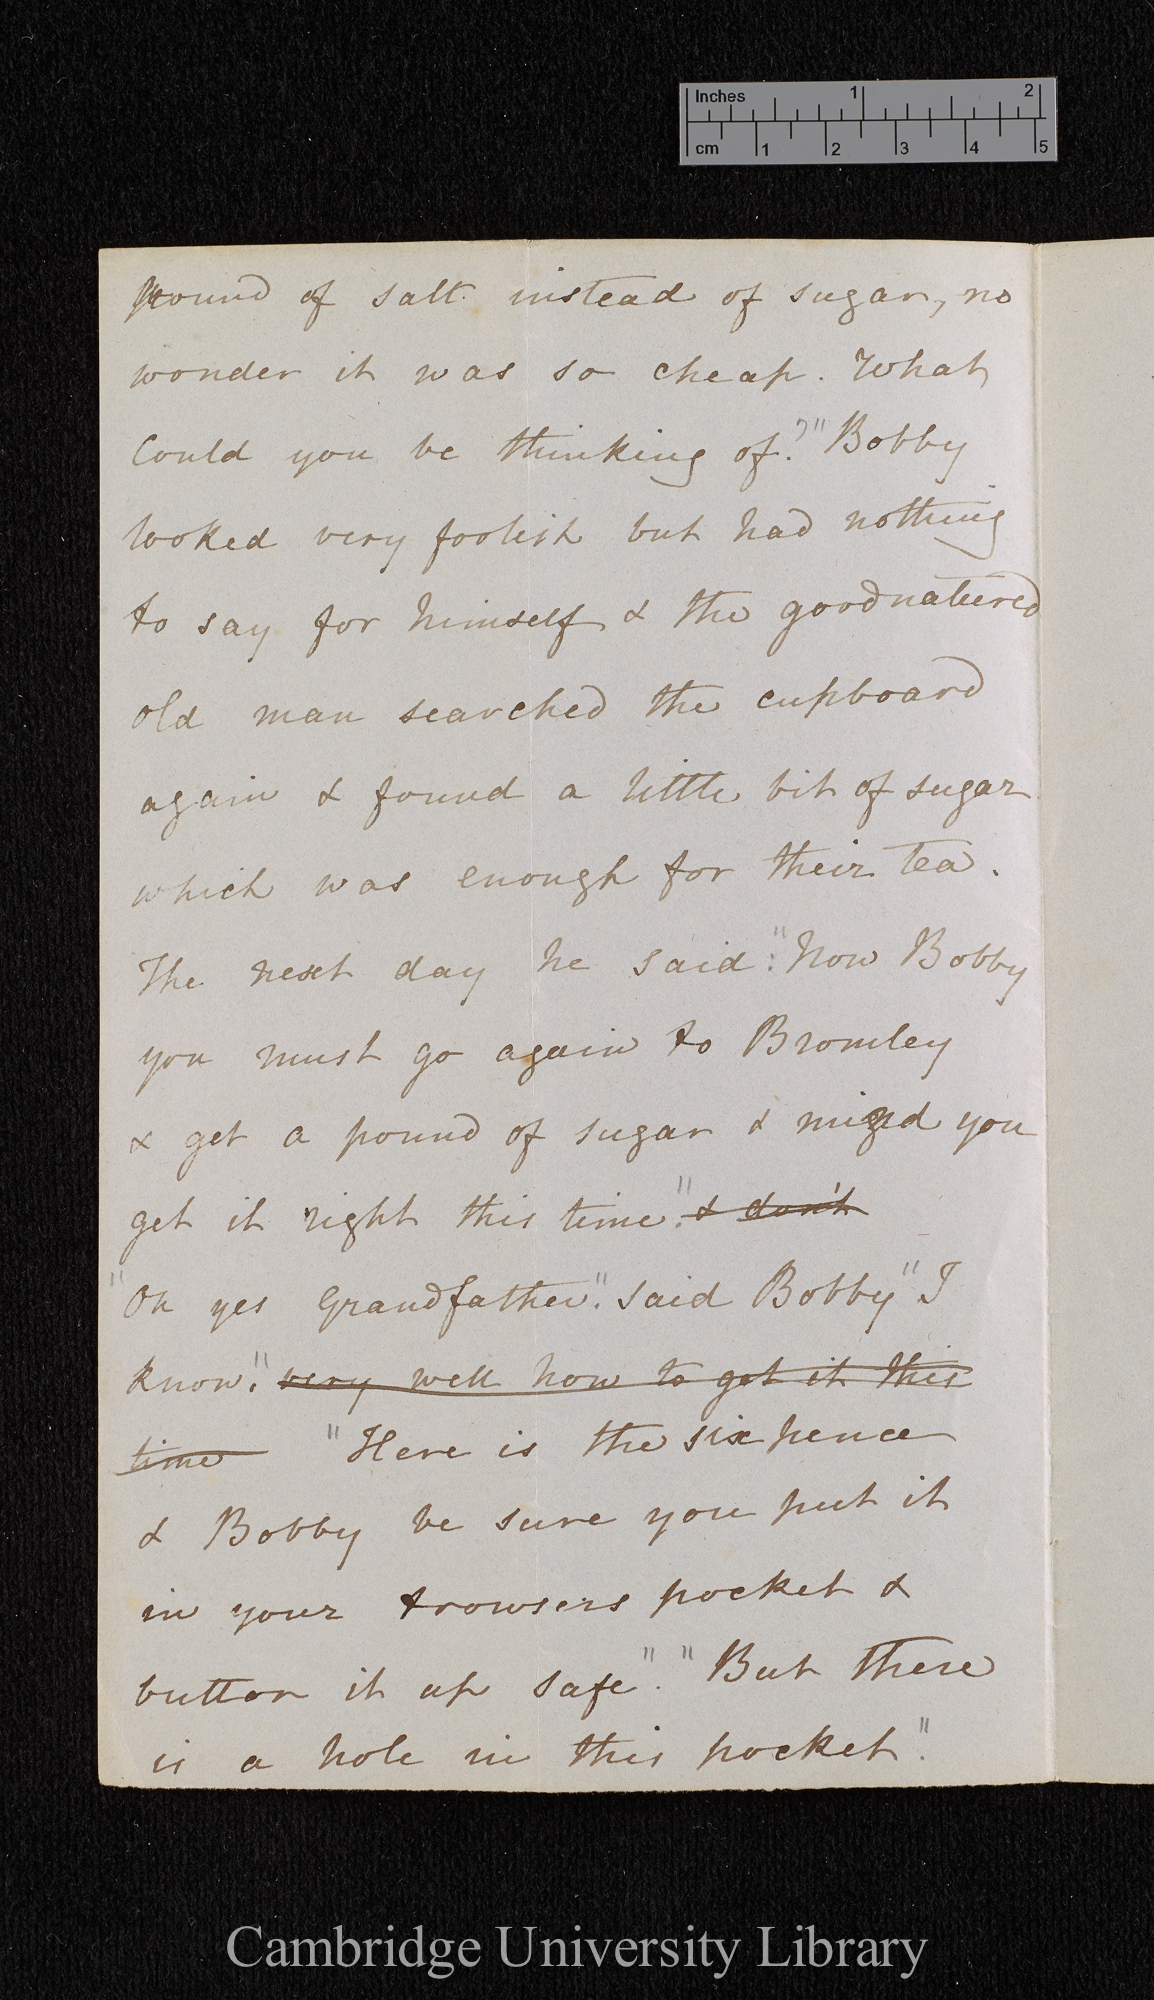 Inches 1 2
cm 1 2 3 4 5
pound of salt instead of sugar, no
wonder it was so cheap. What
Could you be thinking of?" Bobby
looked very foolish but had nothing
to say for himself & the goodnatured
old man searched the cupboard
again & found a little bit of sugar
which was enough for their tea.
The next day he said: "Now Bobby
you must go again to Bromley
& get a pound of sugar & mind you
get it right this time." & don't
"Oh yes Grandfather". said Bobby "I
know." very well how to get it this
time "Here is the sixpence
& Bobby be sure you put it
in your trowsers pocket &
button it up safe". "But there
is a hole in this pocket."
Cambridge University Library